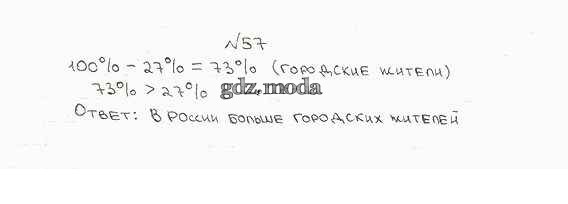 №57
100% - 27% = 73% (городские жители)
73% > 27% gdz.moda
Ответ: В России больше городских жителей